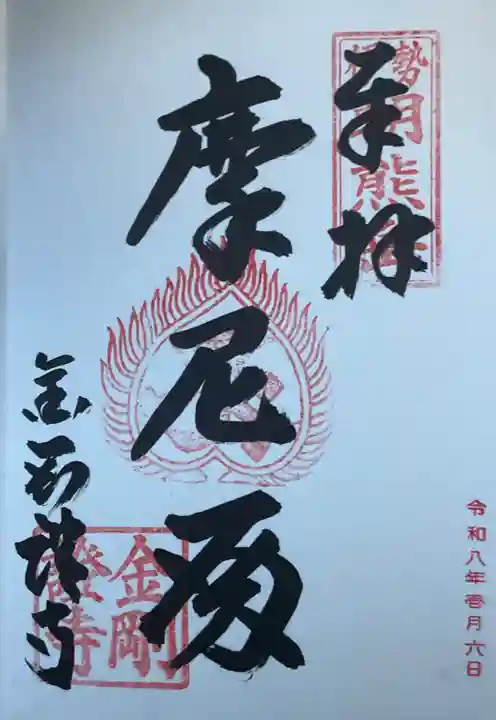 奉拝
伊勢朝熊岳
摩尼殿
金剛證寺
金剛
證寺
令和八年壱月六日